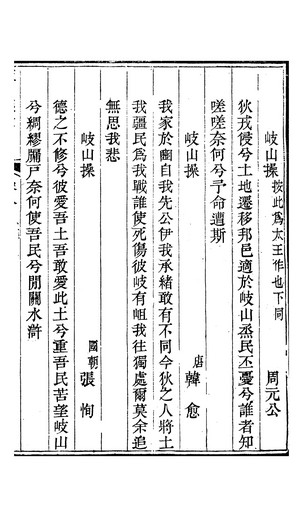 岐山操 按此為太王作也下同 周元公
狄戎侵兮土地遷移邦邑適於岐山烝民不憂兮誰者知
嗟嗟奈何兮予命遭斯
岐山操 唐 韓愈
我家於豳自我先公伊我承緒敢有不同今狄之人將土
我疆民為我戰誰使死傷彼岐有岨我往獨處爾莫余追
無思我悲
岐山操 國朝 張恂
德之不修兮彼愛吾土吾敢愛此土兮重吾民苦望岐山
兮綢繆牖戸奈何使吾民兮閒關水滸